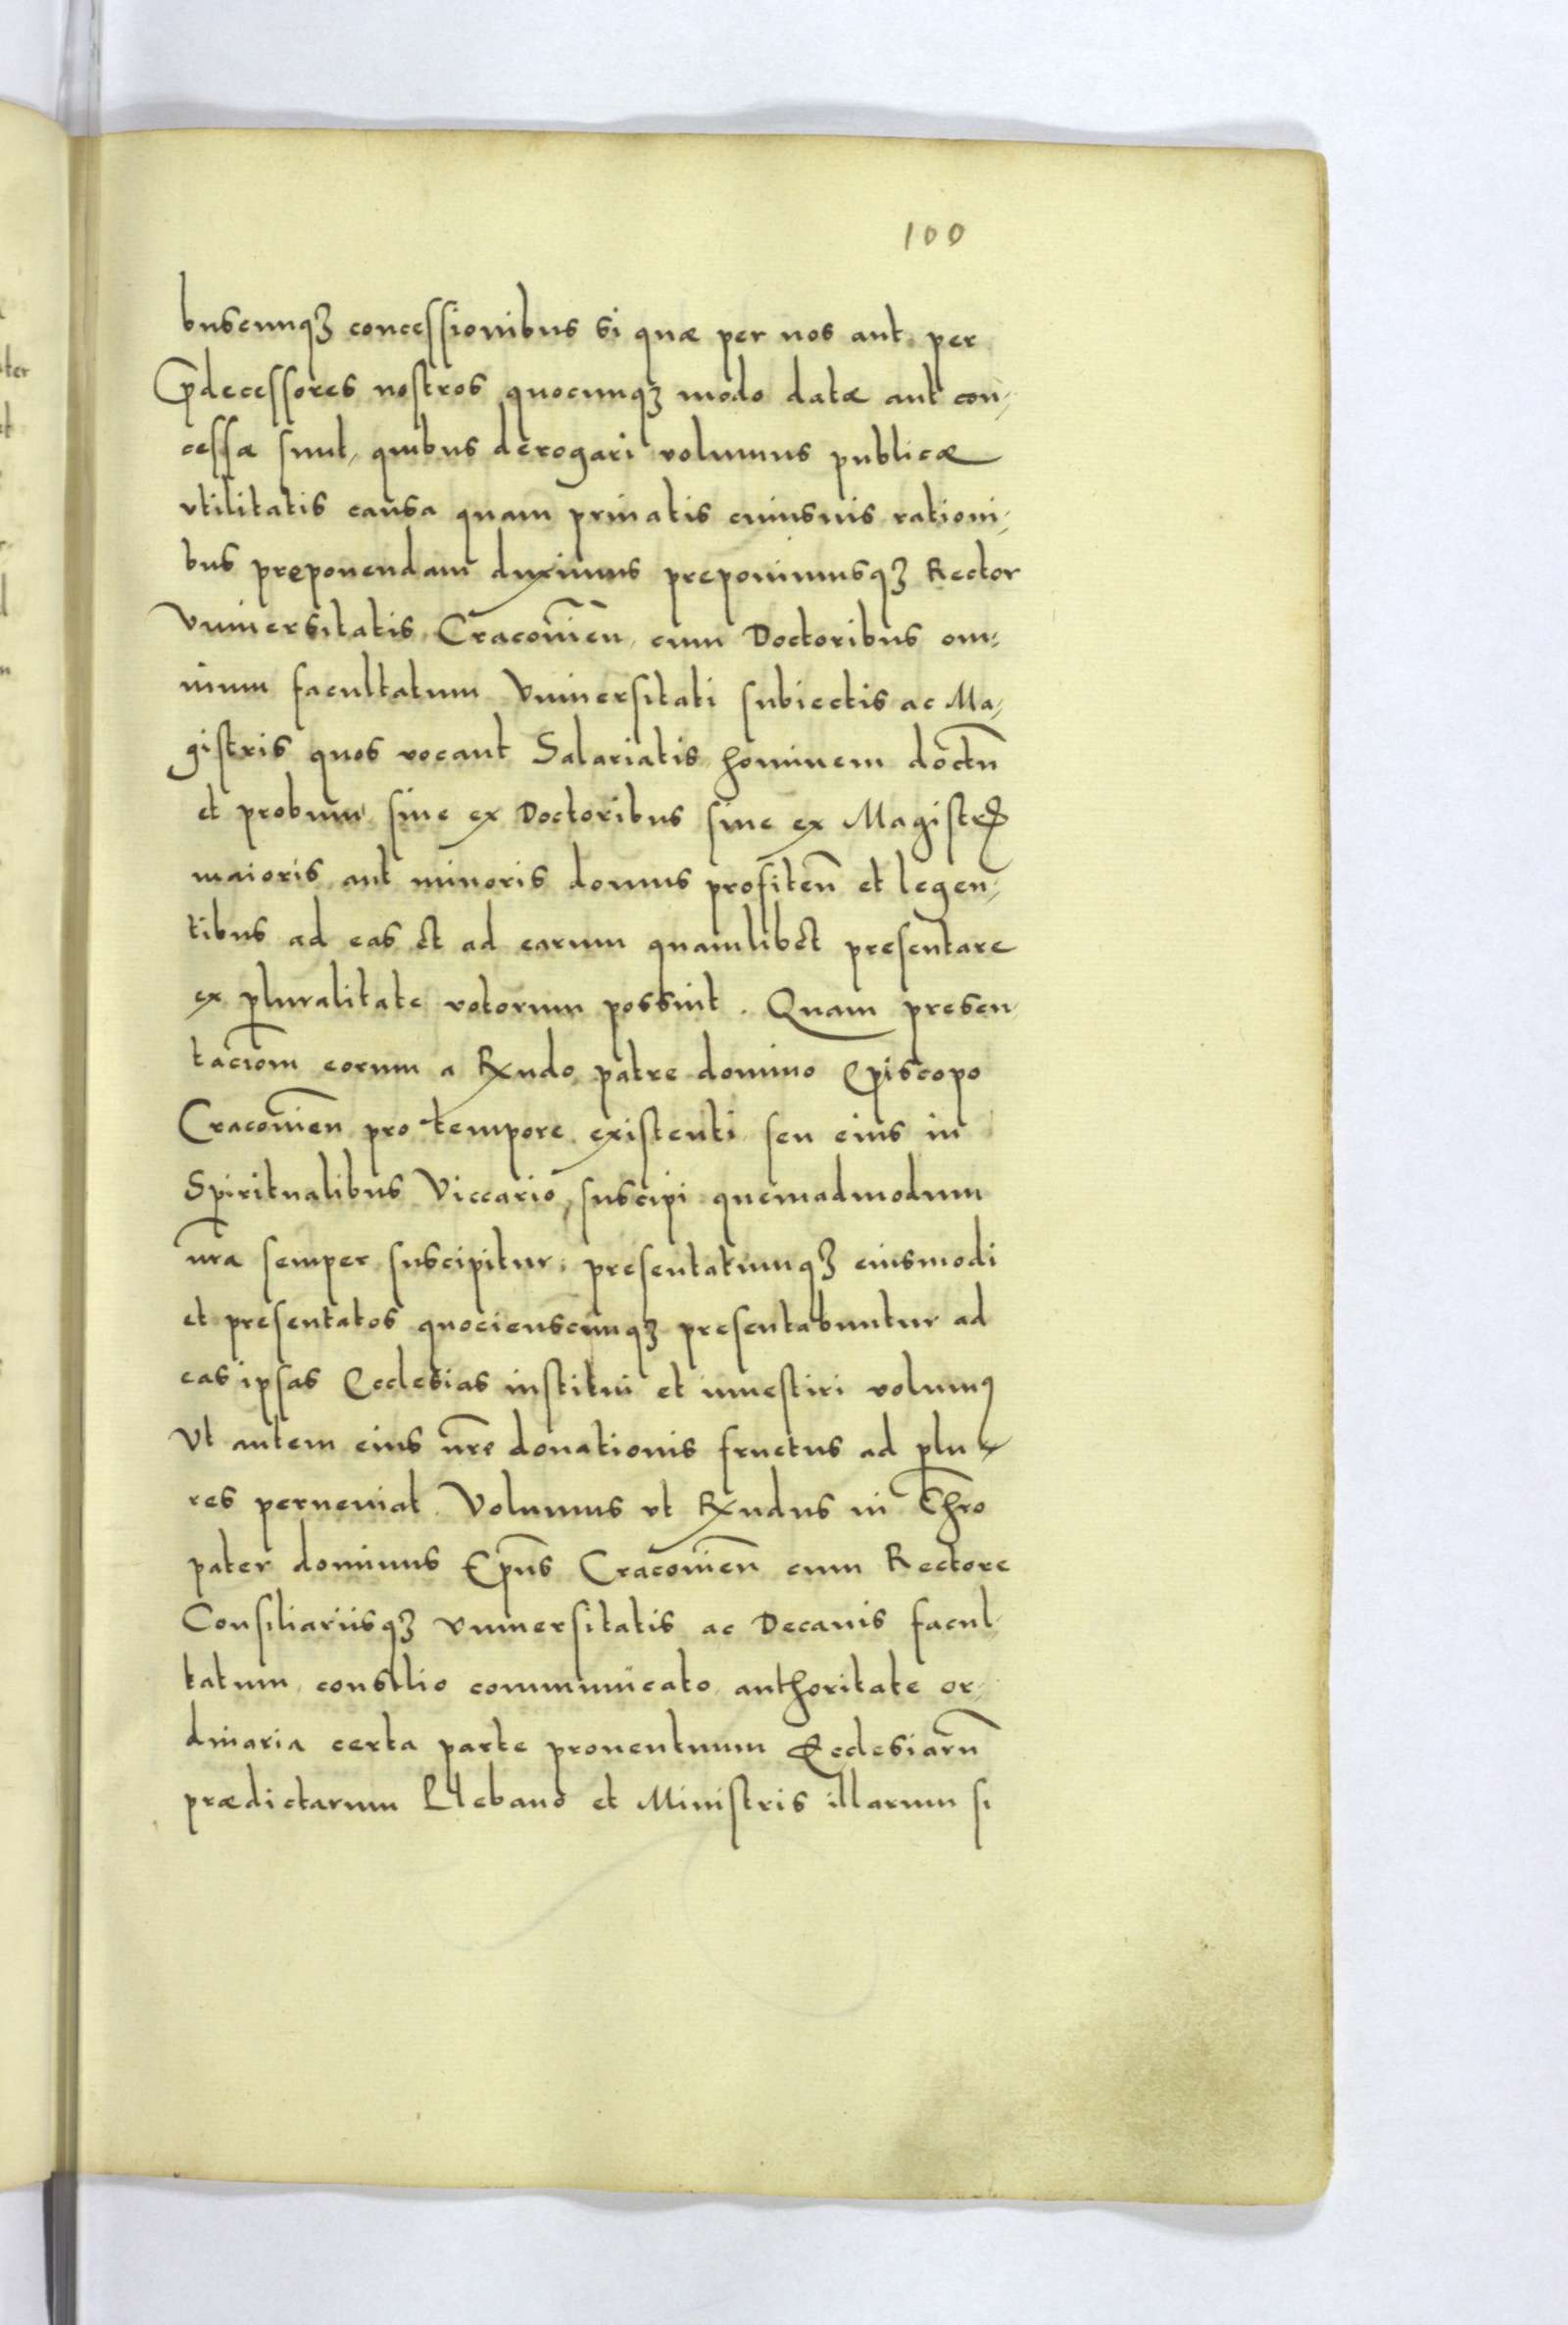 100
buscunqȝ concessionibus si quæ per nos aut per
P̄decessores nostros quocunqȝ modo datæ aut con-
cessæ sunt, quibus derogari volumus publicæ
vtilitatis causa quam priuatis cuiusuis rationi-
bus preponendam duximus preponimusqȝ Rector
Vniuersitatis Cracouien̄ cum Doctoribus om-
nium facultatum Vniuersitati subiectis ac Ma-
gistris quos vocant Salariatis hominem doctū
et probum siue ex Doctoribus siue ex Magistrꝭ
maioris aut minoris domus profiten̄ et legen-
tibus ad eas et ad earum quamlibet presentare
ex pluralitate votorum possint. Quam presen-
tacīom eorum a Rxndo patre domino Episcopo
Cracouien̄ pro tempore existenti seu eius in
Spiritualibus Viccario, suscipi quemadmodum
nr̄a semper suscipitur, presentatumqȝ eiusmodi
et presentatos quocienscunqȝ presentabuntur ad
eas ipsas Ecclesias institui et inuestiri volumꝰ
Vt autem eius nr̄e donationis fructus ad plu-
res perueniat. Volumus vt Rxndus in Chr̄o
pater dominus Ep̄us Cracouien̄ cum Rectore
Consiliariisqȝ vniuersitatis ac Decanis facul-
tatum consilio communicato authoritate or-
dinaria certa parte prouentuum Ecclesiarū
prædictarum Plebano et Ministris illarum si